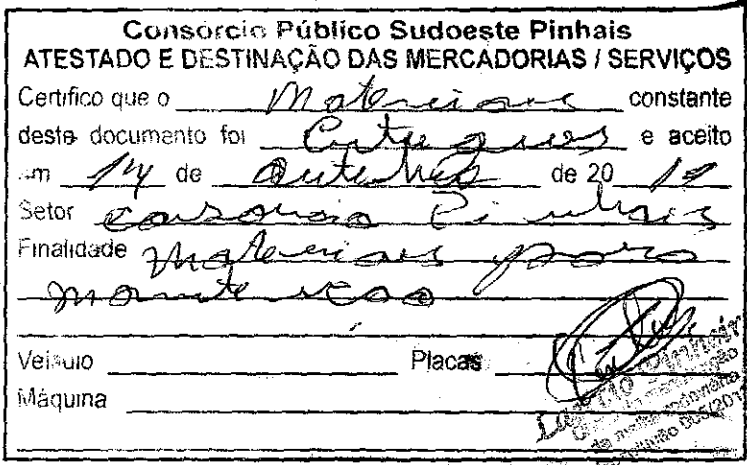 Consórcio Público Sudoeste Pinhais
ATESTADO E DESTINAÇÃO DAS MERCADORIAS / SERVIÇOS
Certifico que o Materiais constante
deste documento foi Entregues e aceito
em 14 de outubro de 20
Setor consorcio Pinhais
Finalidade Materiais para
manutencao
Veículo Placas
Máquina
005/201